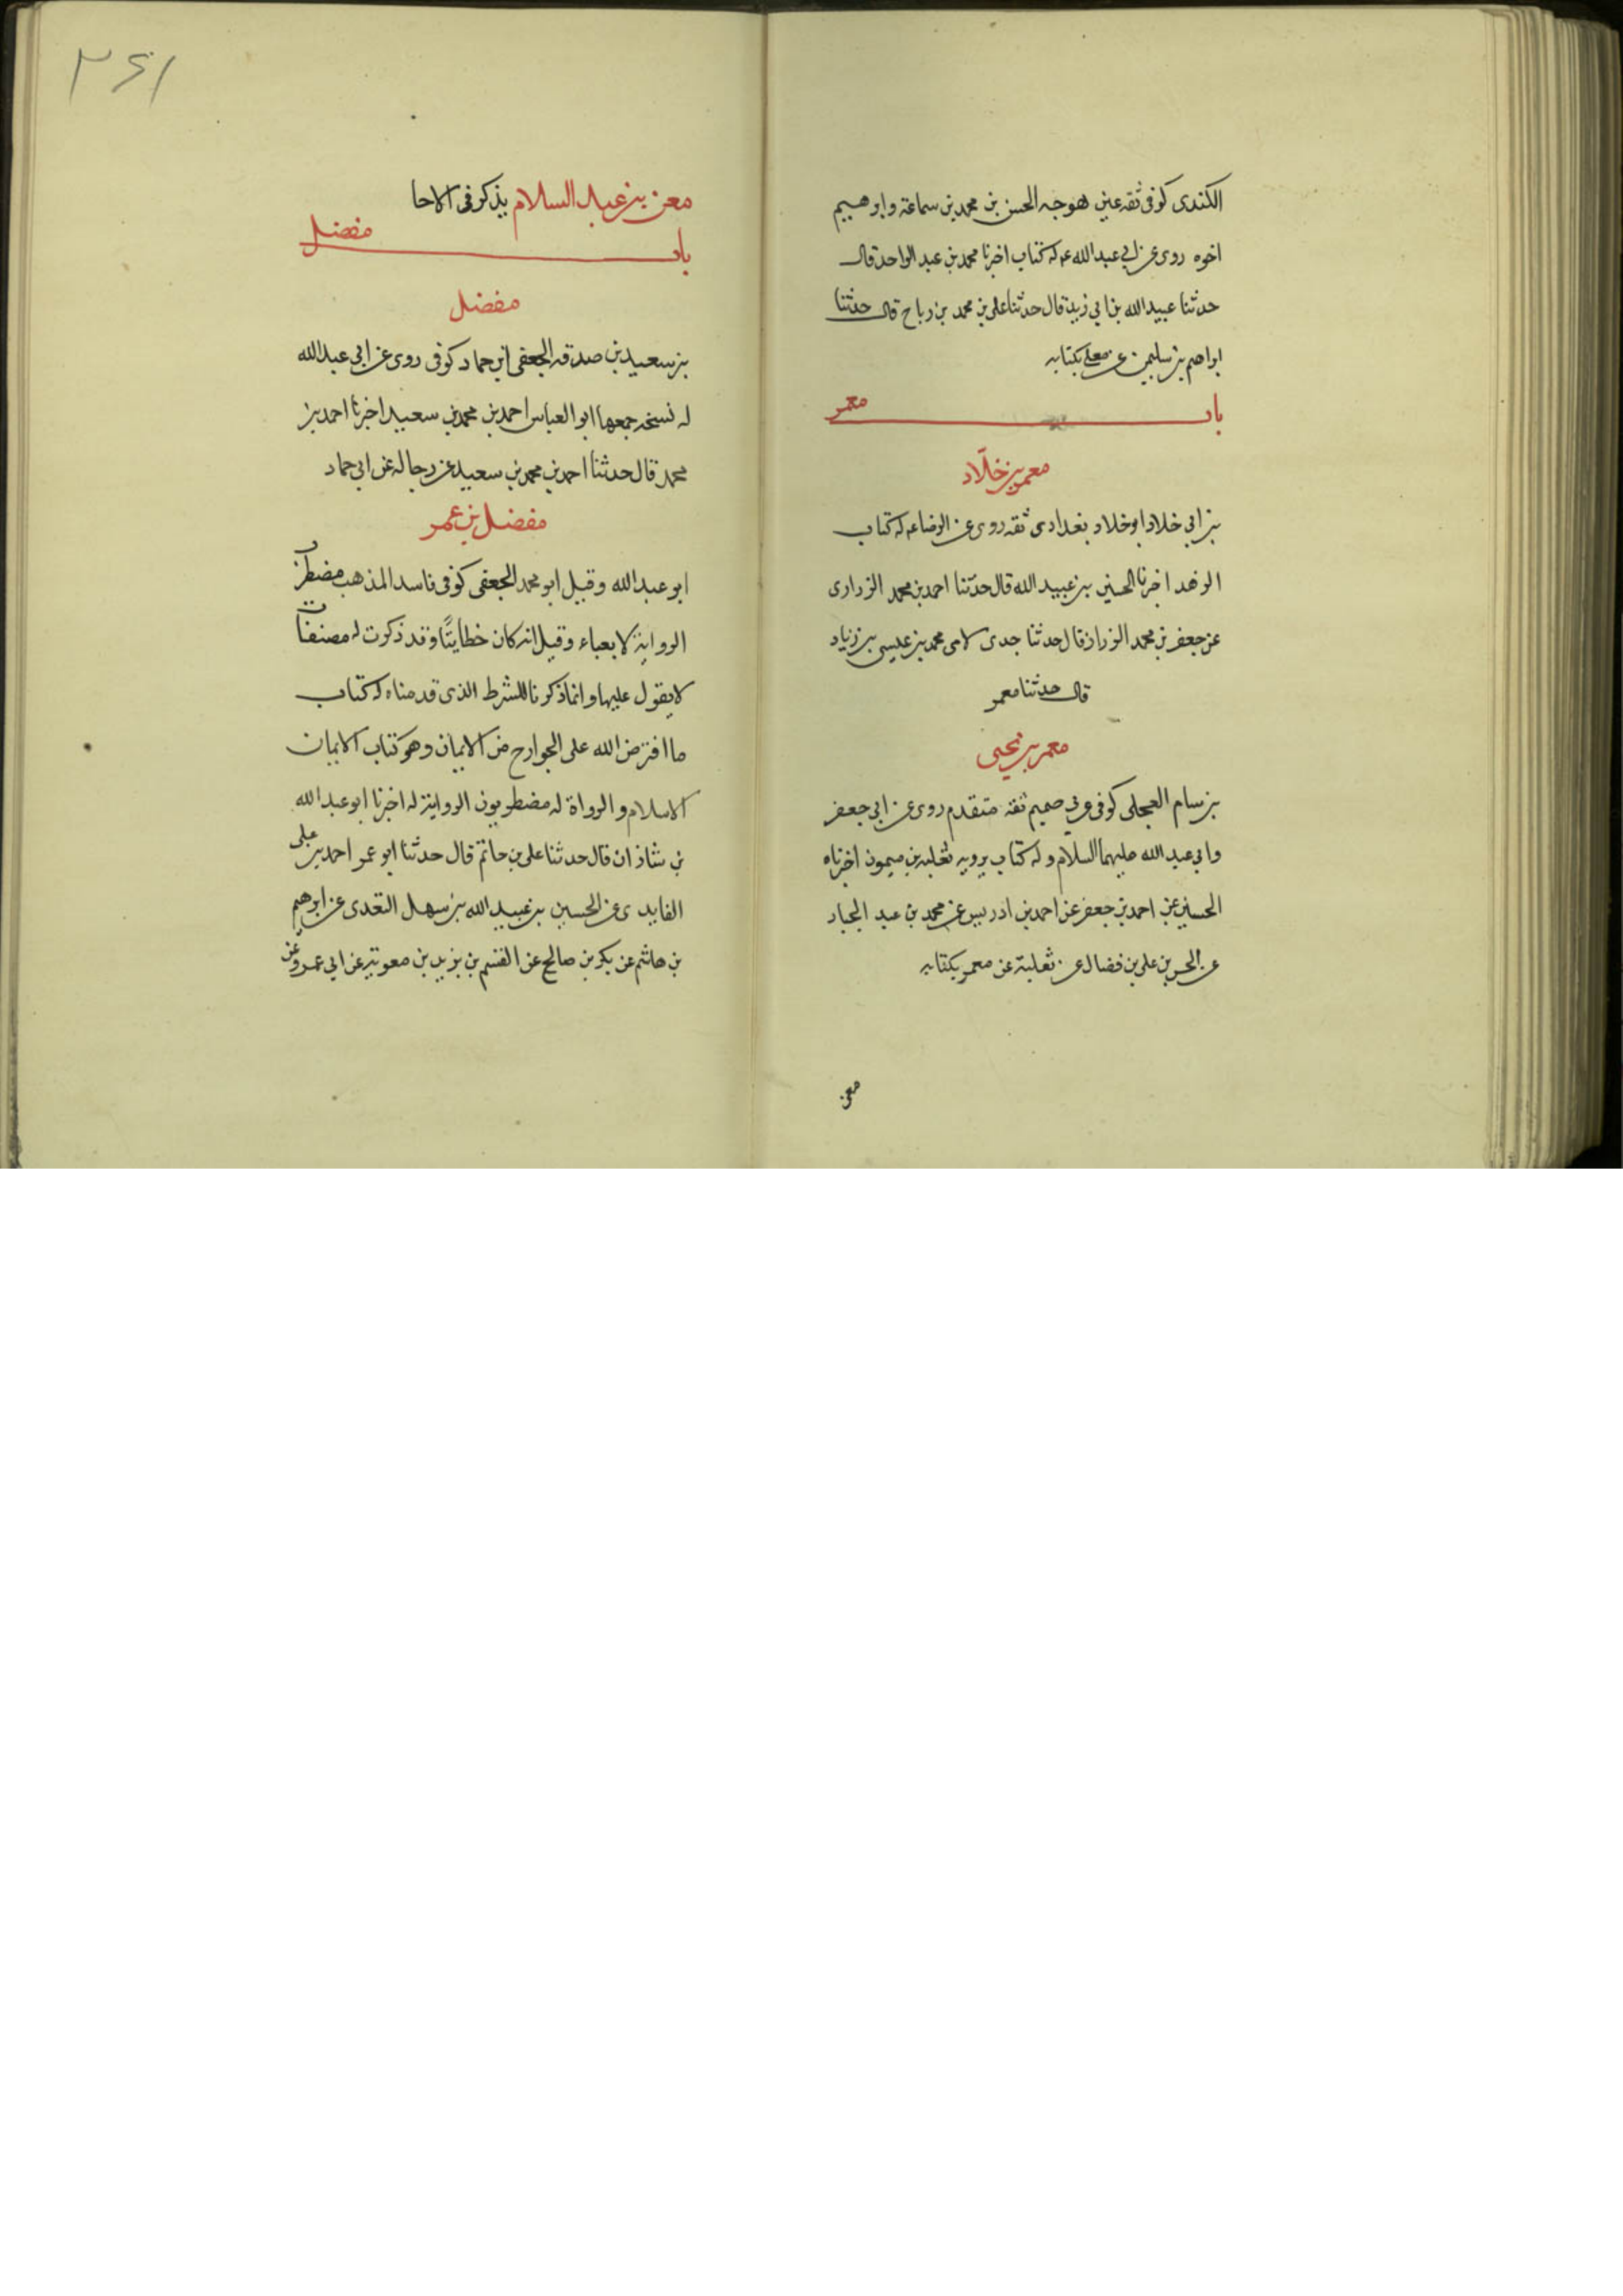 الكندى كوفى ثقه عين هو وجه الحسن بن محمد بن سماعة وابرهيم
اخوه روى عن ابي عبد الله ع له كتاب اخبرنا محمد بن عبد الواحد قال
حدثنا عبيد الله بن ابي زيد قال حدثنا على بن محمد بن رباح قال حدثنا
ابراهيم بن سليمن عن معلى بكتابه
باب معمر
معمر بن خلّاد
بن ابى خلاد ابو خلاد بغدادى ثقه روى عن الرضا ع له كتاب
الزهد اخبرنا الحسين بن عبيد الله قال حدثنا احمد بن محمد الزرارى
عن جعفر بن محمد الرزاز قال حدثنا جدى لامى محمد بن عيسى بن زياد
قال حدثنا معمر
معمر بن يحيى
بن سام العجلى كوفى عربى صميم ثقه متقدم روى عن ابى جعفر
وابى عبد الله عليهما السلام وله كتاب يرويه ثعلبه بن ميمون اخبرناه
الحسين عن احمد بن جعفر عن احمد بن ادريس عن محمد بن عبد الجبار
عن الحسن بن على بن فضال عن ثعلبة عن معمر بكتابه
معن
٣٤١
معن بن عبد السلام يذكر فى الاحا
باب مفضل
مفضل
بن سعيد بن صدقه الجعفى ابن حماد كوفى روى عن ابى عبد الله
له نسخه جمعها ابو العباس احمد بن محمد بن سعيد اخبرنا احمد بن
محمد قال حدثنا احمد بن محمد بن سعيد عن رجاله عن ابى حماد
مفضل بن عمر
ابو عبد الله وقيل ابو محمد الجعفى كوفى فاسد المذهب مضطرب
الرواية لا يعباء وقيل انه كان خطابيًا وقد ذكرت له مصنفات
لا يقول عليها وانما ذكرنا للشرط الذى قدمناه له كتاب
ما افترض الله على الجوارح من الايمان وهو كتاب الايمان
الاسلام والرواة له مضطربون الرواية له اخبرنا ابو عبد الله
بن شاذان قال حدثنا على بن حاتم قال حدثنا ابو عمر احمد بن على
الفايدى عن الحسين بن عبيد الله بن سهل التعدى عن ابرهيم
بن هاشم عن بكر بن صالح عن القسم بن يزيد بن معوية عن ابى عمرو عن